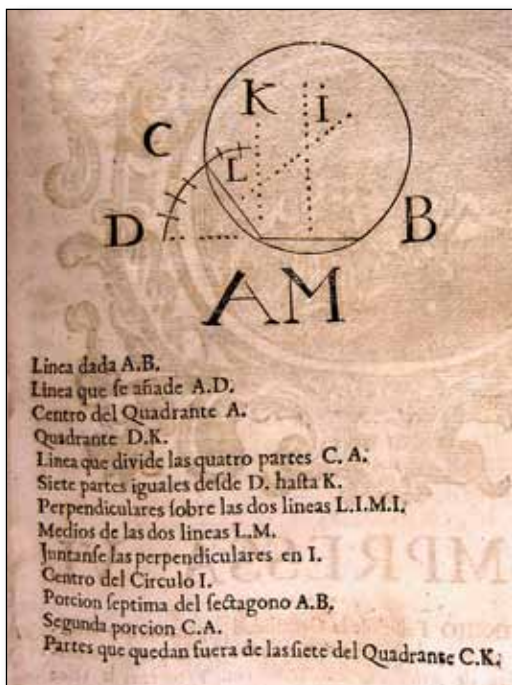 K I
C L
D B
A M
Linea dada A.B.
Linea que ſe añade A.D.
Centro del Quadrante A.
Quadrante D.K.
Linea que divide las quatro partes C. A.
Siete partes iguales deſde D. haſta K.
Perpendiculares ſobre las dos lineas L.I.M.I.
Medios de las dos lineas L.M.
Juntanſe las perpendiculares en I.
Centro del Circulo I.
Porcion ſeptima del ſectagono A.B.
Segunda porcion C.A.
Partes que quedan fuera de las ſiete del Quadrante C.K.